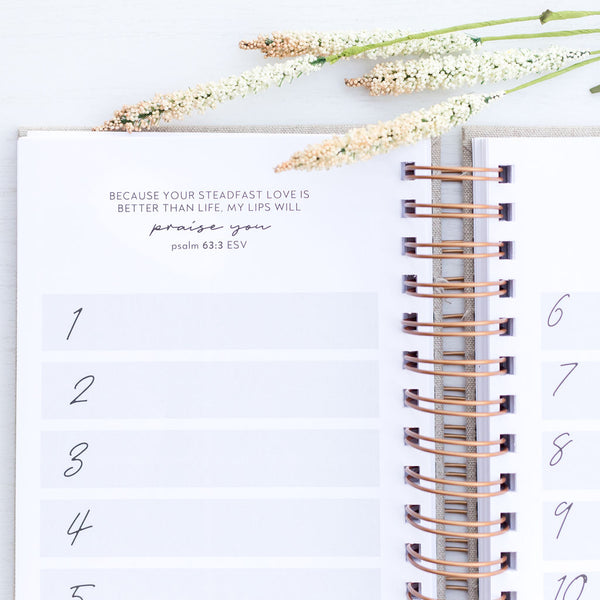 BECAUSE YOUR STEADFAST LOVE IS
BETTER THAN LIFE, MY LIPS WILL
praise you
psalm 63:3 ESV
1
2
3
4
5
6
7
8
9
10